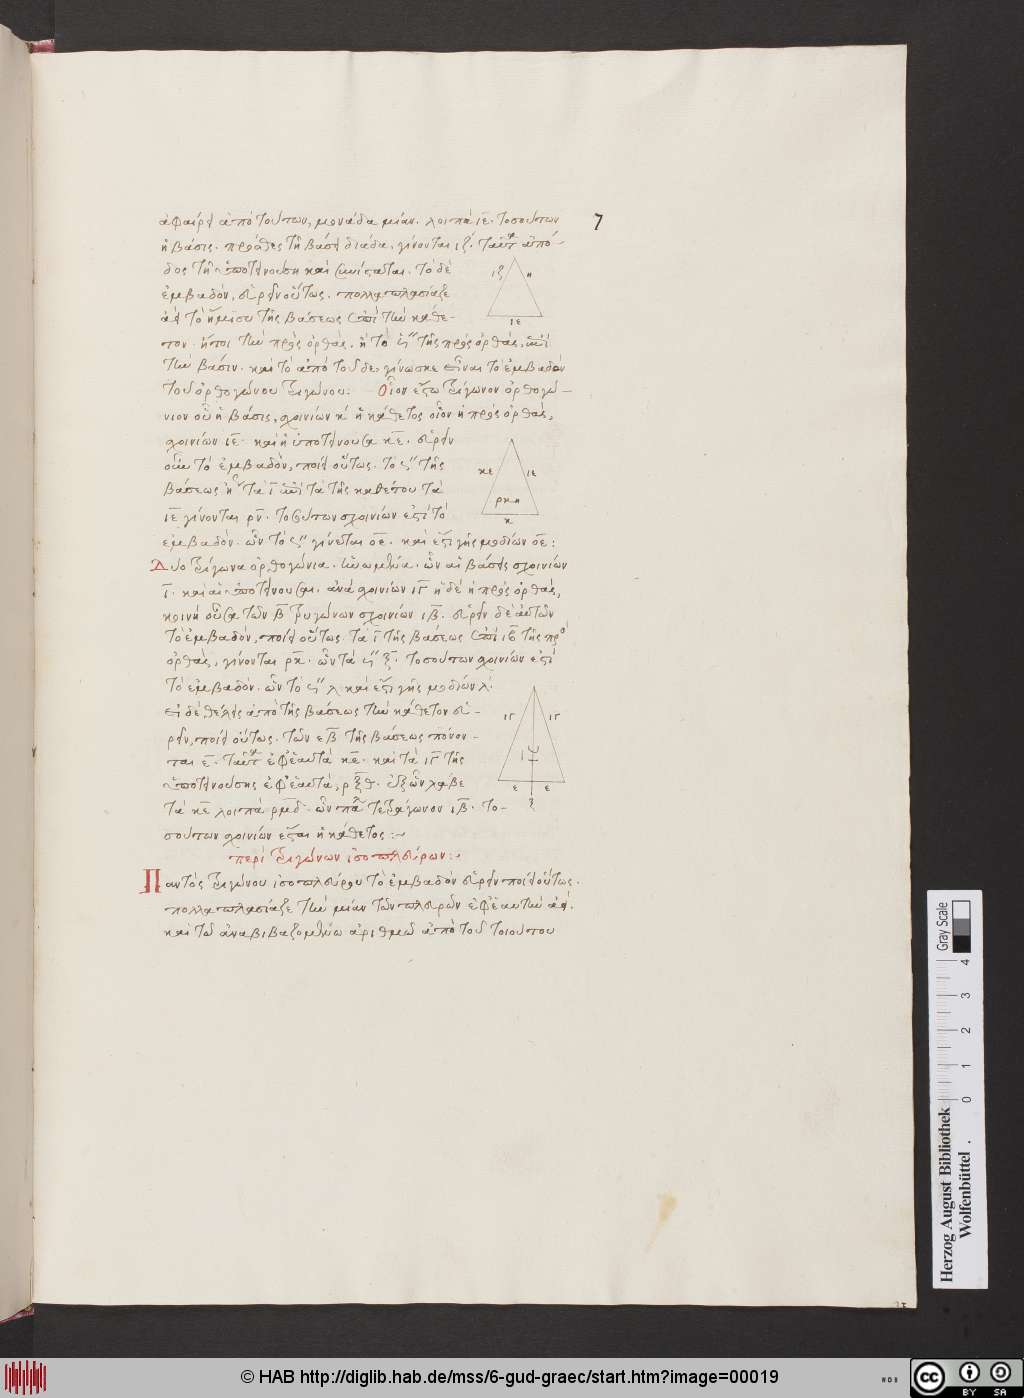 ἀφαίρει ἀπὸ τούτων, μονάδα μίαν. λοιπὰ ιε. τοσούτων
7
ἡ βάσις. πρόσθες τῇ βάσει δυάδα, γίνονται ιζ. ταῦτα ἀπό-
δος τῇ ὑποτεινούσῃ καὶ συνίσταται. τὸ δὲ
ἐμβαδόν, εὑρεῖν οὕτως. πολλαπλασίαζε
ἀεὶ τὸ ἥμισυ τῆς βάσεως ἐπὶ τὴν κάθε-
τον ἤτοι τὴν πρὸς ὀρθάς. ἢ τὸ ϛ'' τῆς πρὸς ὀρθάς, ἐπὶ
τὴν βάσιν. καὶ τὸ ἀπὸ τοῦδε, γίνωσκε εἶναι τὸ ἐμβαδὸν
τοῦ ὀρθογώνου τριγώνου: Οἷον ἔστω τρίγωνον ὀρθογώ-
νιον οὗ ἡ βάσις, σχοινίων κ ἡ κάθετος οἷον ἡ πρὸς ὀρθάς,
σχοινίων ιε. καὶ ἡ ὑποτείνουσα κε. εὑρεῖν
οὖν τὸ ἐμβαδόν, ποίει οὕτως. τὸ ϛ'' τῆς
βάσεως ἤτοι τὰ ι ἐπὶ τὰ τῆς καθέτου τὰ
ιε γίνονται ρν. τοσούτων σχοινίων ἐστὶ τὸ
ἐμβαδόν. ὧν τὸ ϛ'' γίνεται οε. καὶ ἔστι γῆς μοδίων οε:
Δύο τρίγωνα ὀρθογώνια. ἡνωμένα. ὧν αἱ βάσεις σχοινίων
ι. καὶ αἱ ὑποτείνουσαι. ἀνὰ σχοινίων ιγ ἡ δὲ ἡ πρὸς ὀρθάς,
κοινὴ οὖσα τῶν β τριγώνων σχοινίων ιβ. εὑρεῖν δὲ αὐτῶν
τὸ ἐμβαδόν, ποίει οὕτως τὰ ι τῆς βάσεως ἐπὶ ιβ τῆς πρὸς
ὀρθάς, γίνονται ρκ. ὧν τὰ ϛ'' ξ. τοσούτων σχοινίων ἐστὶ
τὸ ἐμβαδόν. ὧν τὸ ϛ'' λ καὶ ἔστι γῆς μοδίων λ.
εἰ δὲ θέλεις ἀπὸ τῆς βάσεως τὴν κάθετον εὑ-
ρεῖν, ποίει οὕτως. τῶν ε β τῆς βάσεως
ται ε. ταῦτα ἐφ' ἑαυτὰ κε. καὶ τὰ ιγ τῆς
ὑποτεινούσης ἐφ' ἑαυτά, ρξθ. ἐξ ὧν λάβε
τὰ κε λοιπὰ ρμδ. ὧν τετράγωνον ιβ. το-
σούτων σχοινίων ἔσται ἡ κάθετος:~
περὶ τριγώνων ἰσοπλεύρων:~
Παντὸς τριγώνου ἰσοπλεύρου τὸ ἐμβαδὸν εὑρεῖν ποίει οὕτως.
πολλαπλασίαζε τὴν μίαν τῶν πλευρῶν ἐφ' ἑαυτὴν ἀεί.
καὶ τῷ ἀναβιβαζομένῳ ἀριθμῷ ἀπὸ τοῦ τοιούτου
ιζ
η
ιε
κε
ιε
ρκη
κ
ιγ
ιγ
ε
ε
ξ
Herzog August Bibliothek
Wolfenbüttel .
Gray Scale
0 1 2 3 4
© HAB http://diglib.hab.de/mss/6-gud-graec/start.htm?image=00019
cc
BY SA